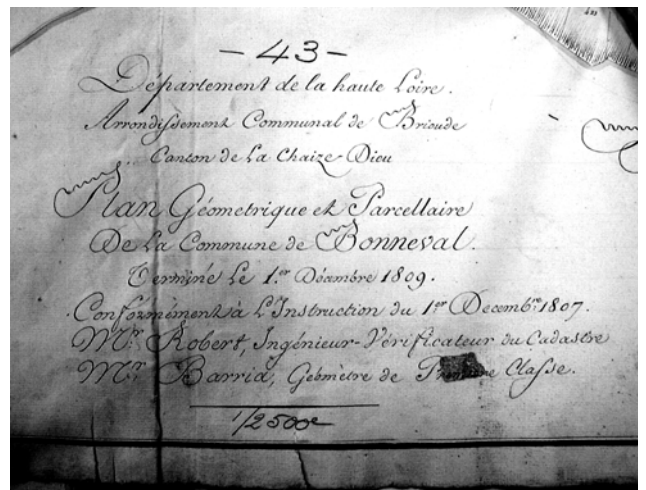 - 43 -
Département de la haute Loire.
Arrondissement Communal de Brioude
Canton de La Chaize-Dieu
Plan Géometrique et Parcellaire
De La Commune de Bonneval.
Terminé Le 1.er Décembre 1809.
Conformément à L'Instruction du 1.er Decemb.re 1807.
Mr. Robert, Ingénieur-Vérificateur du Cadastre
Mr. Barrid, Géomètre de Classe.
1/2500e